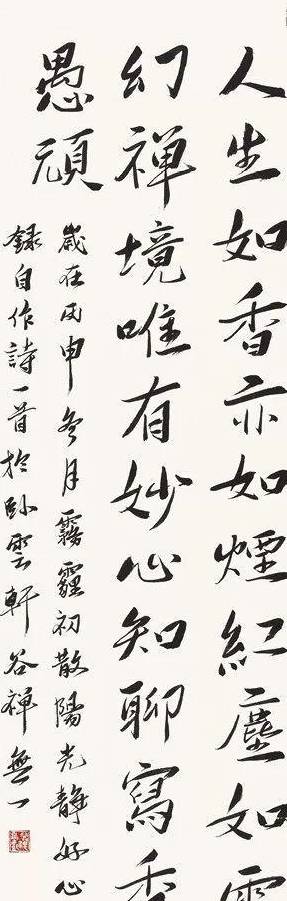 人生如香亦如煙紅塵如
幻禪境唯有妙心知聊寫香
愚頑
歲在丙申冬月霧霾初散陽光靜好心
錄自作詩一首於卧雲軒谷禪無一